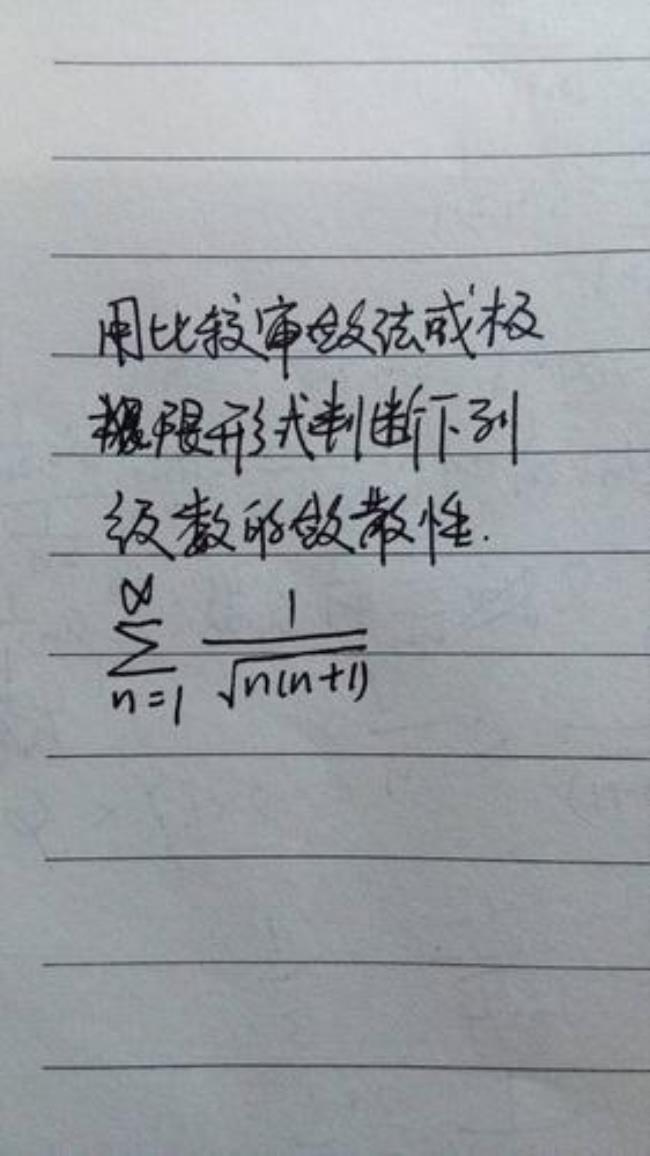 用比较审敛法或极
限形式判断下列
级数的敛散性.
∞
∑ 1/√n(n+1)
n=1